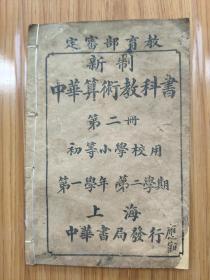 教育部審定
新制
中華算術教科書
第二冊
初等小學校用
第一學年 第二學期
上海
中華書局發行